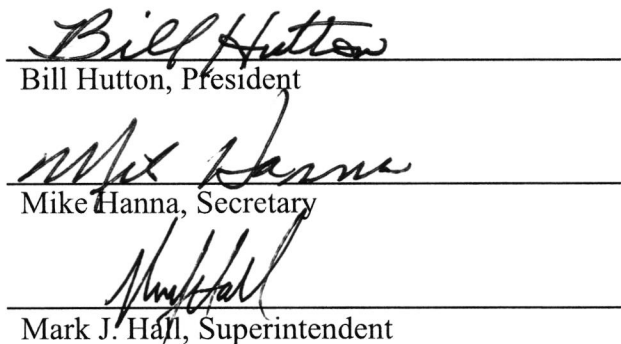 Bill Hutton
Bill Hutton, President
Mike Hanna
Mike Hanna, Secretary
Mark J. Hall, Superintendent